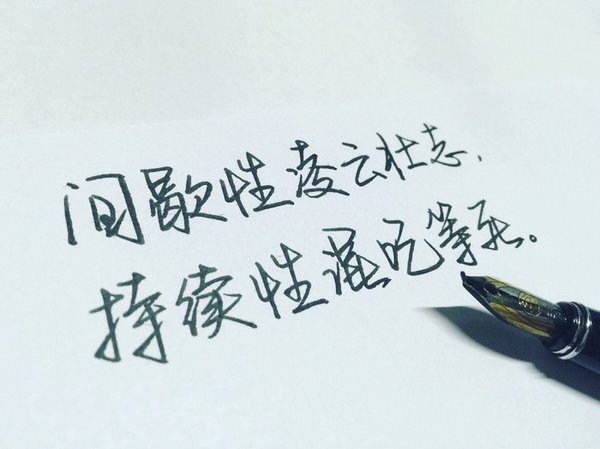 间歇性凌云壮志,
持续性混吃等死。